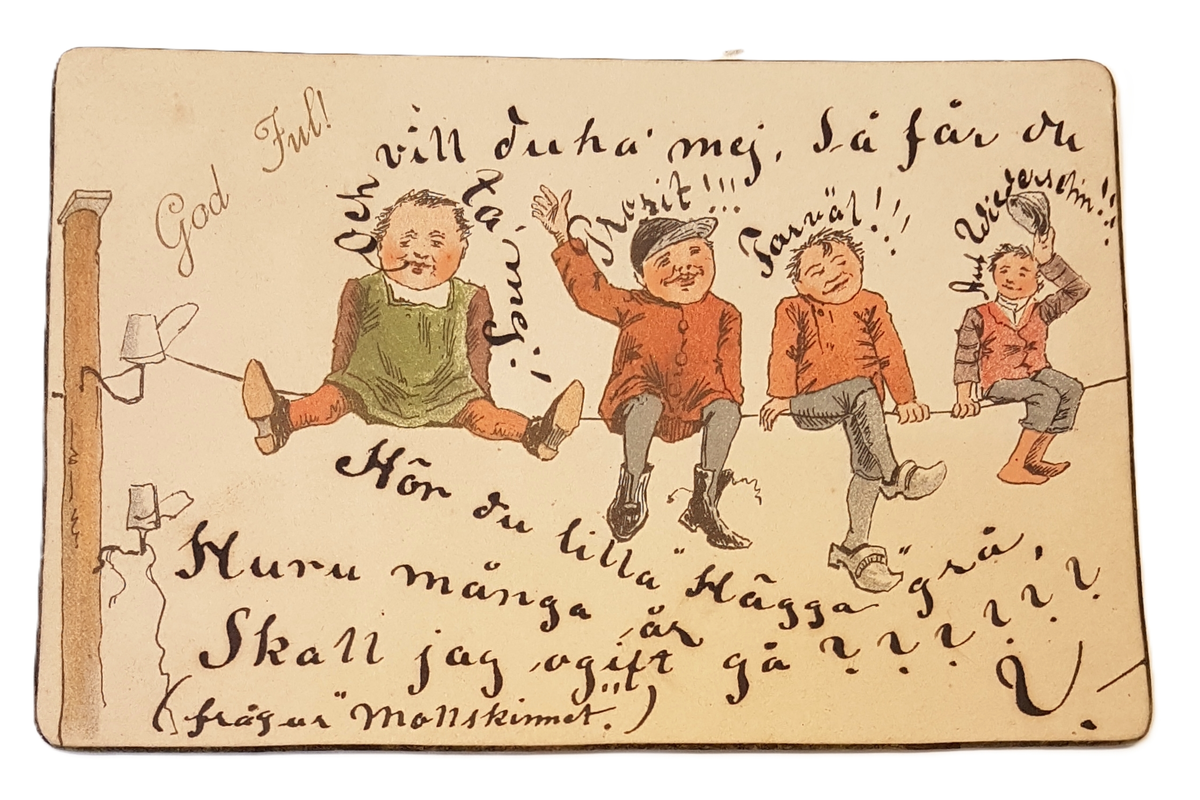 God Jul!
Och vill du ha' mej, Så får du
ta' mej!
Prosit!!!
Farväl!!!
Auf Wiedersehn!!
Hör du lilla "Hägga" grå,
Huru många år
Skall jag ogift gå ???????
(frågar "Mollskinnet"!!)